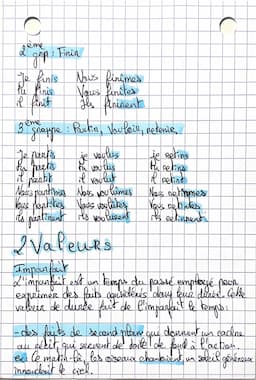 2ème grp : Finir
Je finis Nous finîmes
Tu finis Vous finîtes
il finit Ils finirent
3ème groupe : Partir, Vouloir, retenir,
Je partis je voulus je retins
Tu partis Tu voulus Tu retins
il partit il voulut il retint
Nous partîmes Nous voulûmes Nous retînmes
Vous partîtes Vous voulûtes Vous retîntes
ils partirent Ils voulurent Ils retinrent
2 Valeurs
Imparfait
L'imparfait est un temps du passé employé pour
exprimer des faits considérés dans leur durée. Cette
valeur de durée fait de l'imparfait le temps:
- des faits de second plan qui donnent un cadre
au récit, qui servent de toile de fond à l'action.
ex Ce matin-là, les oiseaux chantaient un soleil généreux
innondait le ciel.